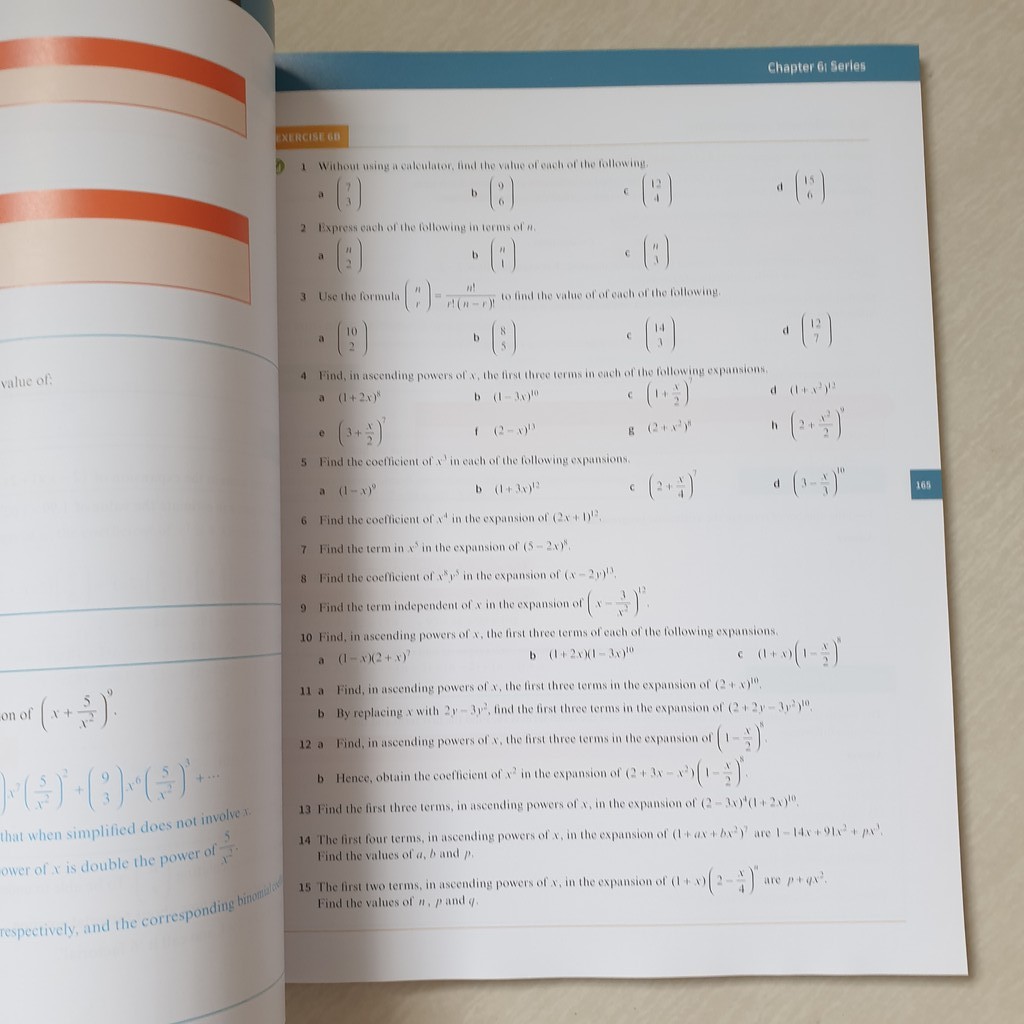 value of:
on of (x + 5/x²)⁹.
x⁷(5/x²)² + (9 3)x⁶(5/x²)³ + ···
that when simplified does not involve x.
ower of x is double the power of 5/x².
respectively, and the corresponding binomial
Chapter 6: Series
EXERCISE 6B
1 Without using a calculator, find the value of each of the following.
a (7 3) b (9 6) c (12 4) d (15 6)
2 Express each of the following in terms of n.
a (n 2) b (n 1) c (n 3)
3 Use the formula (n r) = n!/(r!(n − r)!) to find the value of of each of the following.
a (10 2) b (8 5) c (14 3) d (12 7)
4 Find, in ascending powers of x, the first three terms in each of the following expansions.
a (1 + 2x)⁸ b (1 − 3x)¹⁰ c (1 + x/2)⁷ d (1 + x²)¹²
e (3 + x/2)⁷ f (2 − x)¹³ g (2 + x²)⁸ h (2 + x²/2)⁹
5 Find the coefficient of x³ in each of the following expansions.
a (1 − x)⁹ b (1 + 3x)¹² c (2 + x/4)⁷ d (3 − x/3)¹⁰
165
6 Find the coefficient of x⁴ in the expansion of (2x + 1)¹².
7 Find the term in x⁵ in the expansion of (5 − 2x)⁸.
8 Find the coefficient of x⁸y⁵ in the expansion of (x − 2y)¹³.
9 Find the term independent of x in the expansion of (x − 3/x²)¹².
10 Find, in ascending powers of x, the first three terms of each of the following expansions.
a (1 − x)(2 + x)⁷ b (1 + 2x)(1 − 3x)¹⁰ c (1 + x)(1 − x/2)⁸
11 a Find, in ascending powers of x, the first three terms in the expansion of (2 + x)¹⁰.
b By replacing x with 2y − 3y², find the first three terms in the expansion of (2 + 2y − 3y²)¹⁰.
12 a Find, in ascending powers of x, the first three terms in the expansion of (1 − x/2)⁸.
b Hence, obtain the coefficient of x² in the expansion of (2 + 3x − x²)(1 − x/2)⁸.
13 Find the first three terms, in ascending powers of x, in the expansion of (2 − 3x)⁴(1 + 2x)¹⁰.
14 The first four terms, in ascending powers of x, in the expansion of (1 + ax + bx²)⁷ are 1 − 14x + 91x² + px³.
Find the values of a, b and p.
15 The first two terms, in ascending powers of x, in the expansion of (1 + x)(2 − x/4)ⁿ are p + qx².
Find the values of n, p and q.